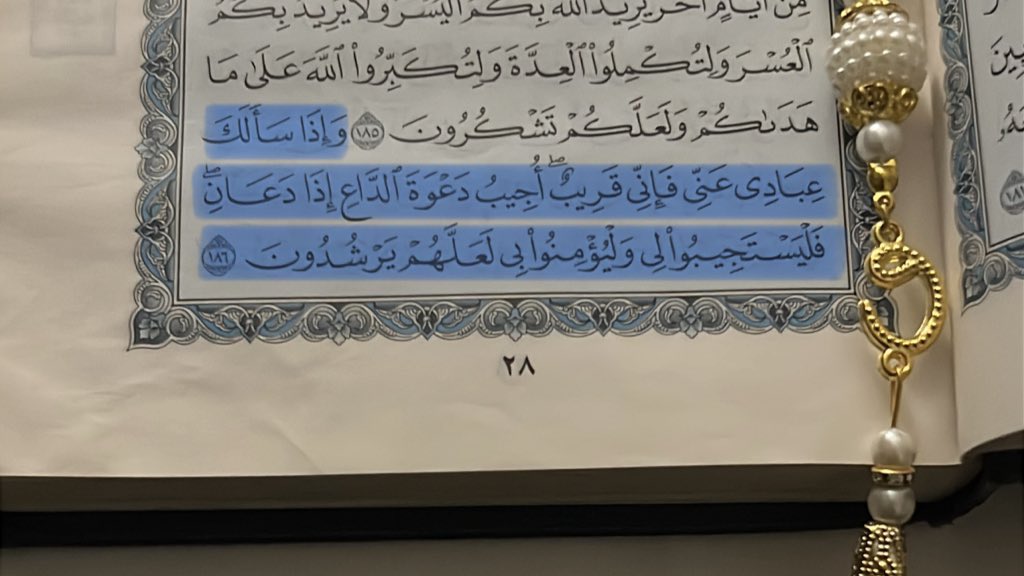 مِنْ أَيَّامٍ أُخَرَ يُرِيدُ ٱللَّهُ بِكُمُ ٱلْيُسْرَ وَلَا يُرِيدُ بِكُمُ
ٱلْعُسْرَ وَلِتُكْمِلُوا۟ ٱلْعِدَّةَ وَلِتُكَبِّرُوا۟ ٱللَّهَ عَلَىٰ مَا
هَدَىٰكُمْ وَلَعَلَّكُمْ تَشْكُرُونَ ١٨٥ وَإِذَا سَأَلَكَ
عِبَادِى عَنِّى فَإِنِّى قَرِيبٌ ۖ أُجِيبُ دَعْوَةَ ٱلدَّاعِ إِذَا دَعَانِ ۖ
فَلْيَسْتَجِيبُوا۟ لِى وَلْيُؤْمِنُوا۟ بِى لَعَلَّهُمْ يَرْشُدُونَ ١٨٦
٢٨